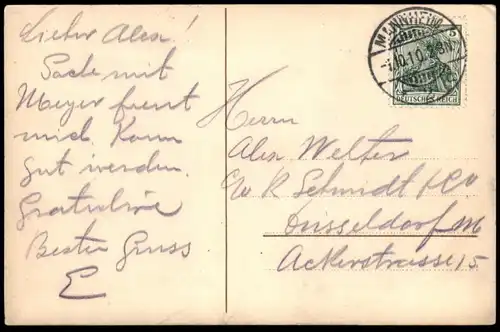 Lieber Alex!
Sache mit
Meyer freut
mich. Kann
gut werden.
Gratuliere
Bester Gruss
E
MANNHEIM
1.10.10
5
DEUTSCHES REICH
Herrn
Alex Welter
c/o R Schmidt & Co
Düsseldorf
Ackerstrasse 15